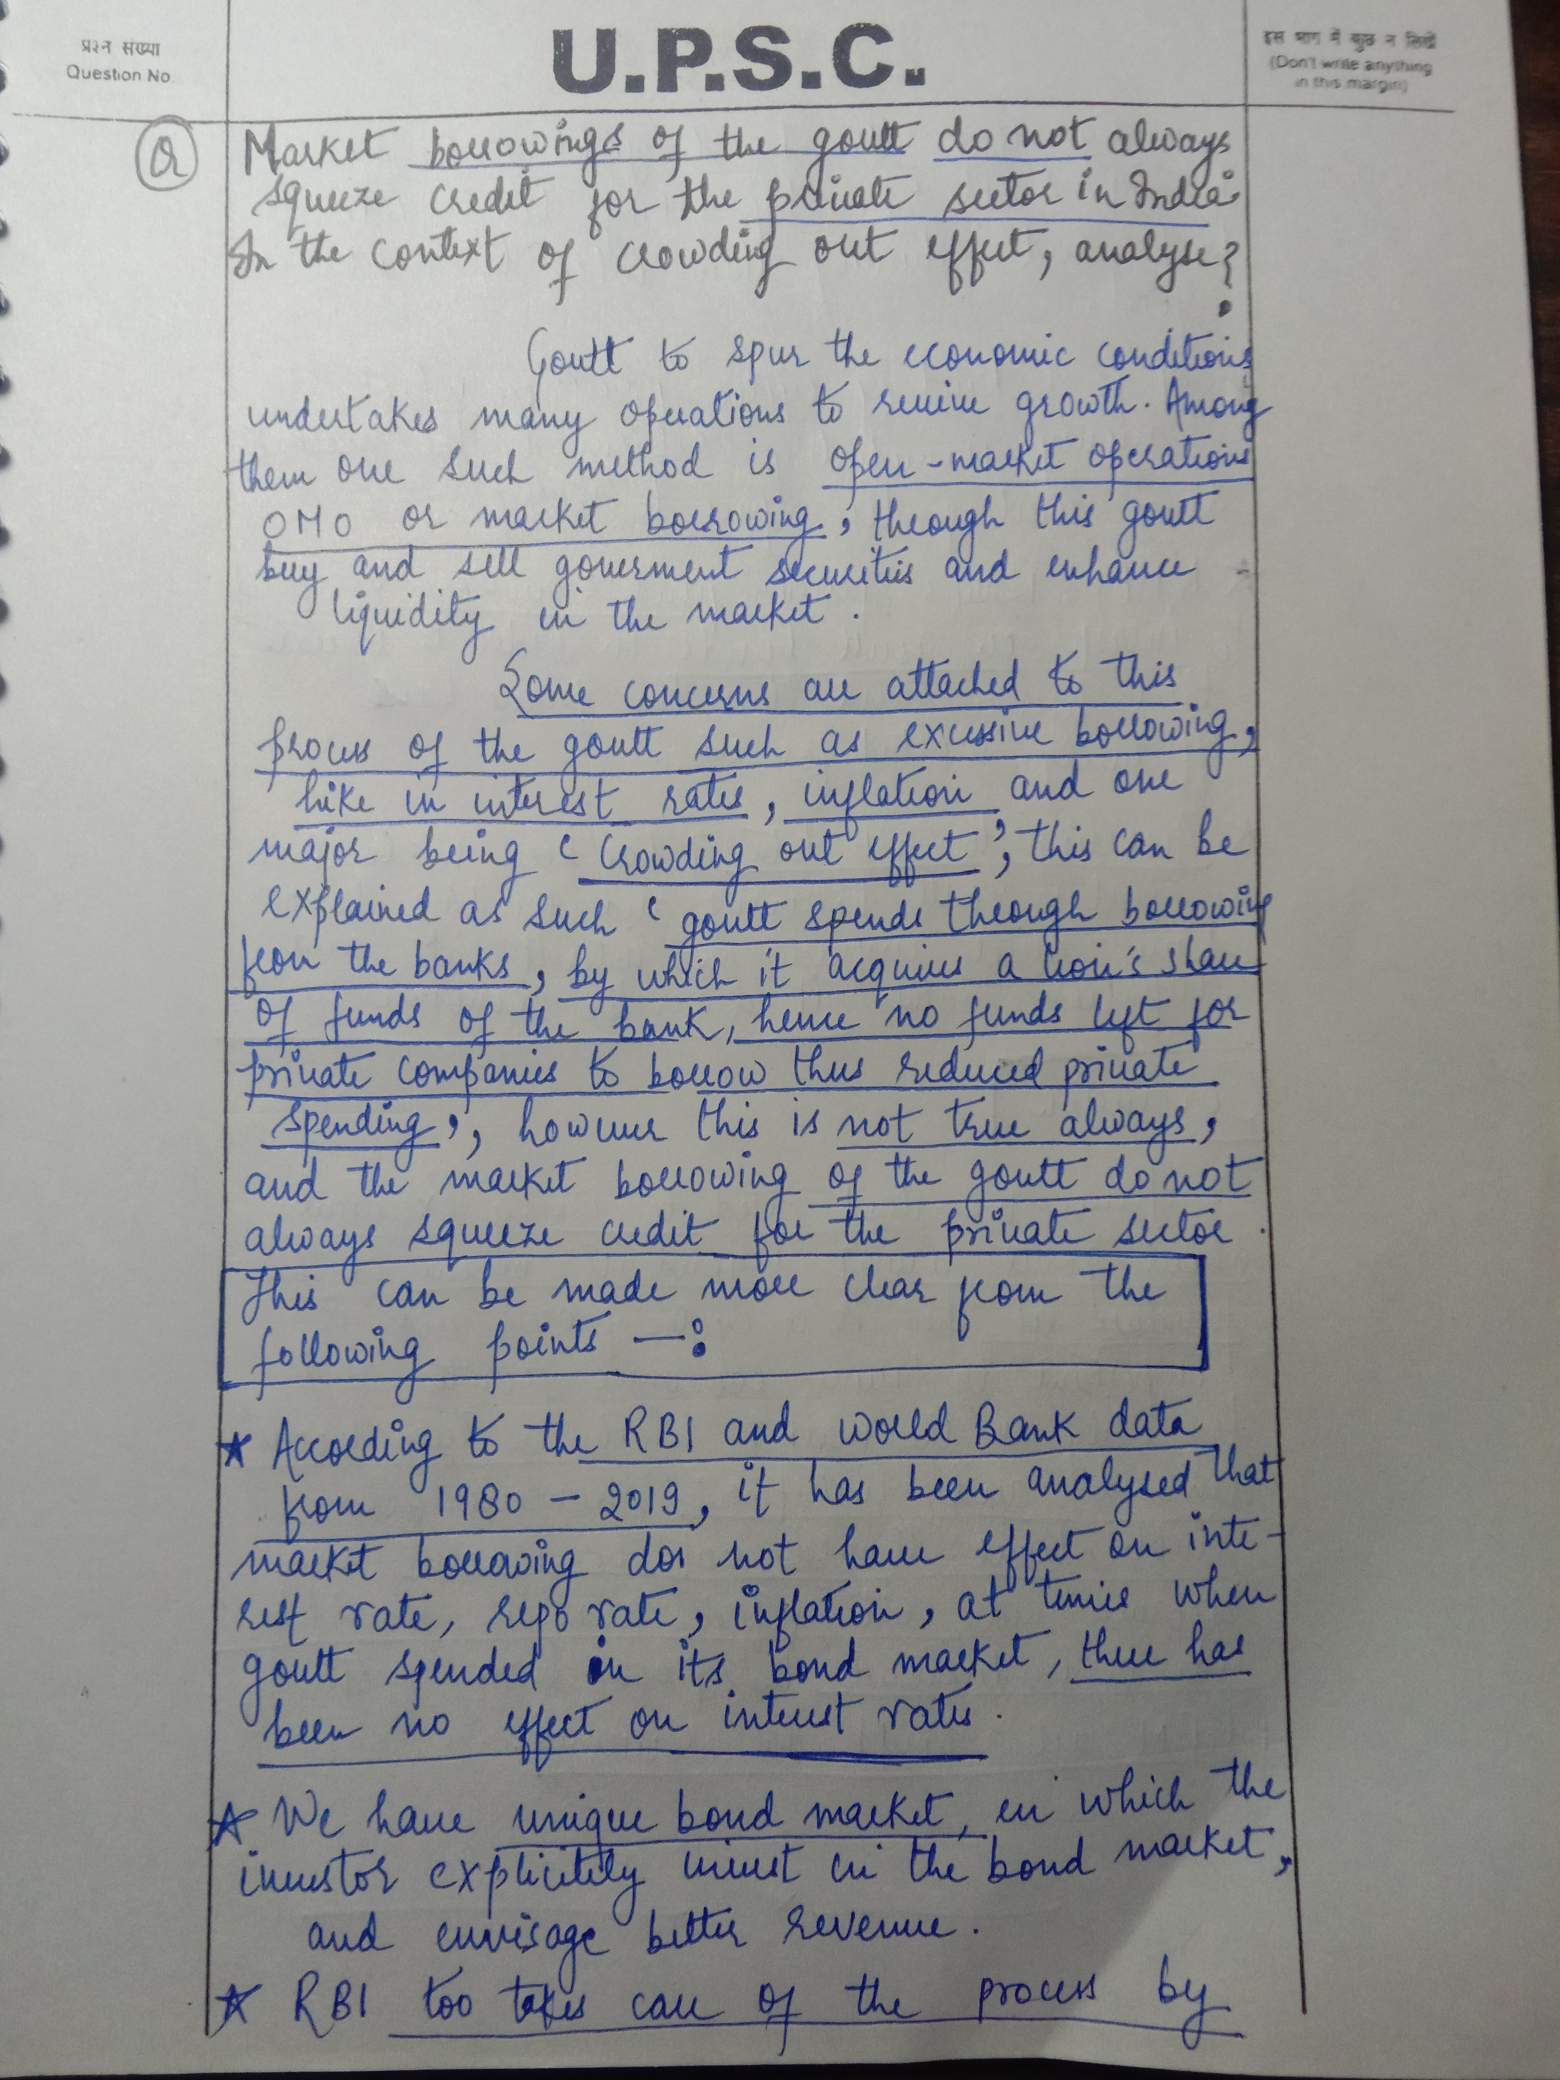 प्रश्न संख्या
Question No.
U.P.S.C.
इस भाग में कुछ न लिखें
(Don't write anything
in this margin)
Q Market borrowings of the govtt do not always
squeeze credit for the private sector in India.
In the context of crowding out effect, analyse?
Govtt to spur the economic conditions
undertakes many operations to revive growth. Among
them one such method is open-market operations
OMO or market borrowing, through this govtt
buy and sell goverment securities and enhance
liquidity in the market.
Some concerns are attached to this
process of the govtt such as excessive borrowing,
hike in interest rates, inflation and one
major being 'Crowding out effect', this can be
explained as such 'govtt spends through borrowing
from the banks, by which it acquires a lion's share
of funds of the bank, hence no funds left for
private companies to borrow thus reduced private
spending', however this is not true always,
and the market borrowing of the govtt do not
always squeeze credit for the private sector.
This can be made more clear from the
following points —:
★ According to the RBI and World Bank data
from 1980 - 2019, it has been analysed that
market borrowing does not have effect on inte-
rest rate, repo rate, inflation, at times when
govtt spended in its bond market, there has
been no effect on interest rates.
★ We have unique bond market, in which the
investor explicitely invest in the bond market,
and envisage better revenue.
★ RBI too takes care of the process by